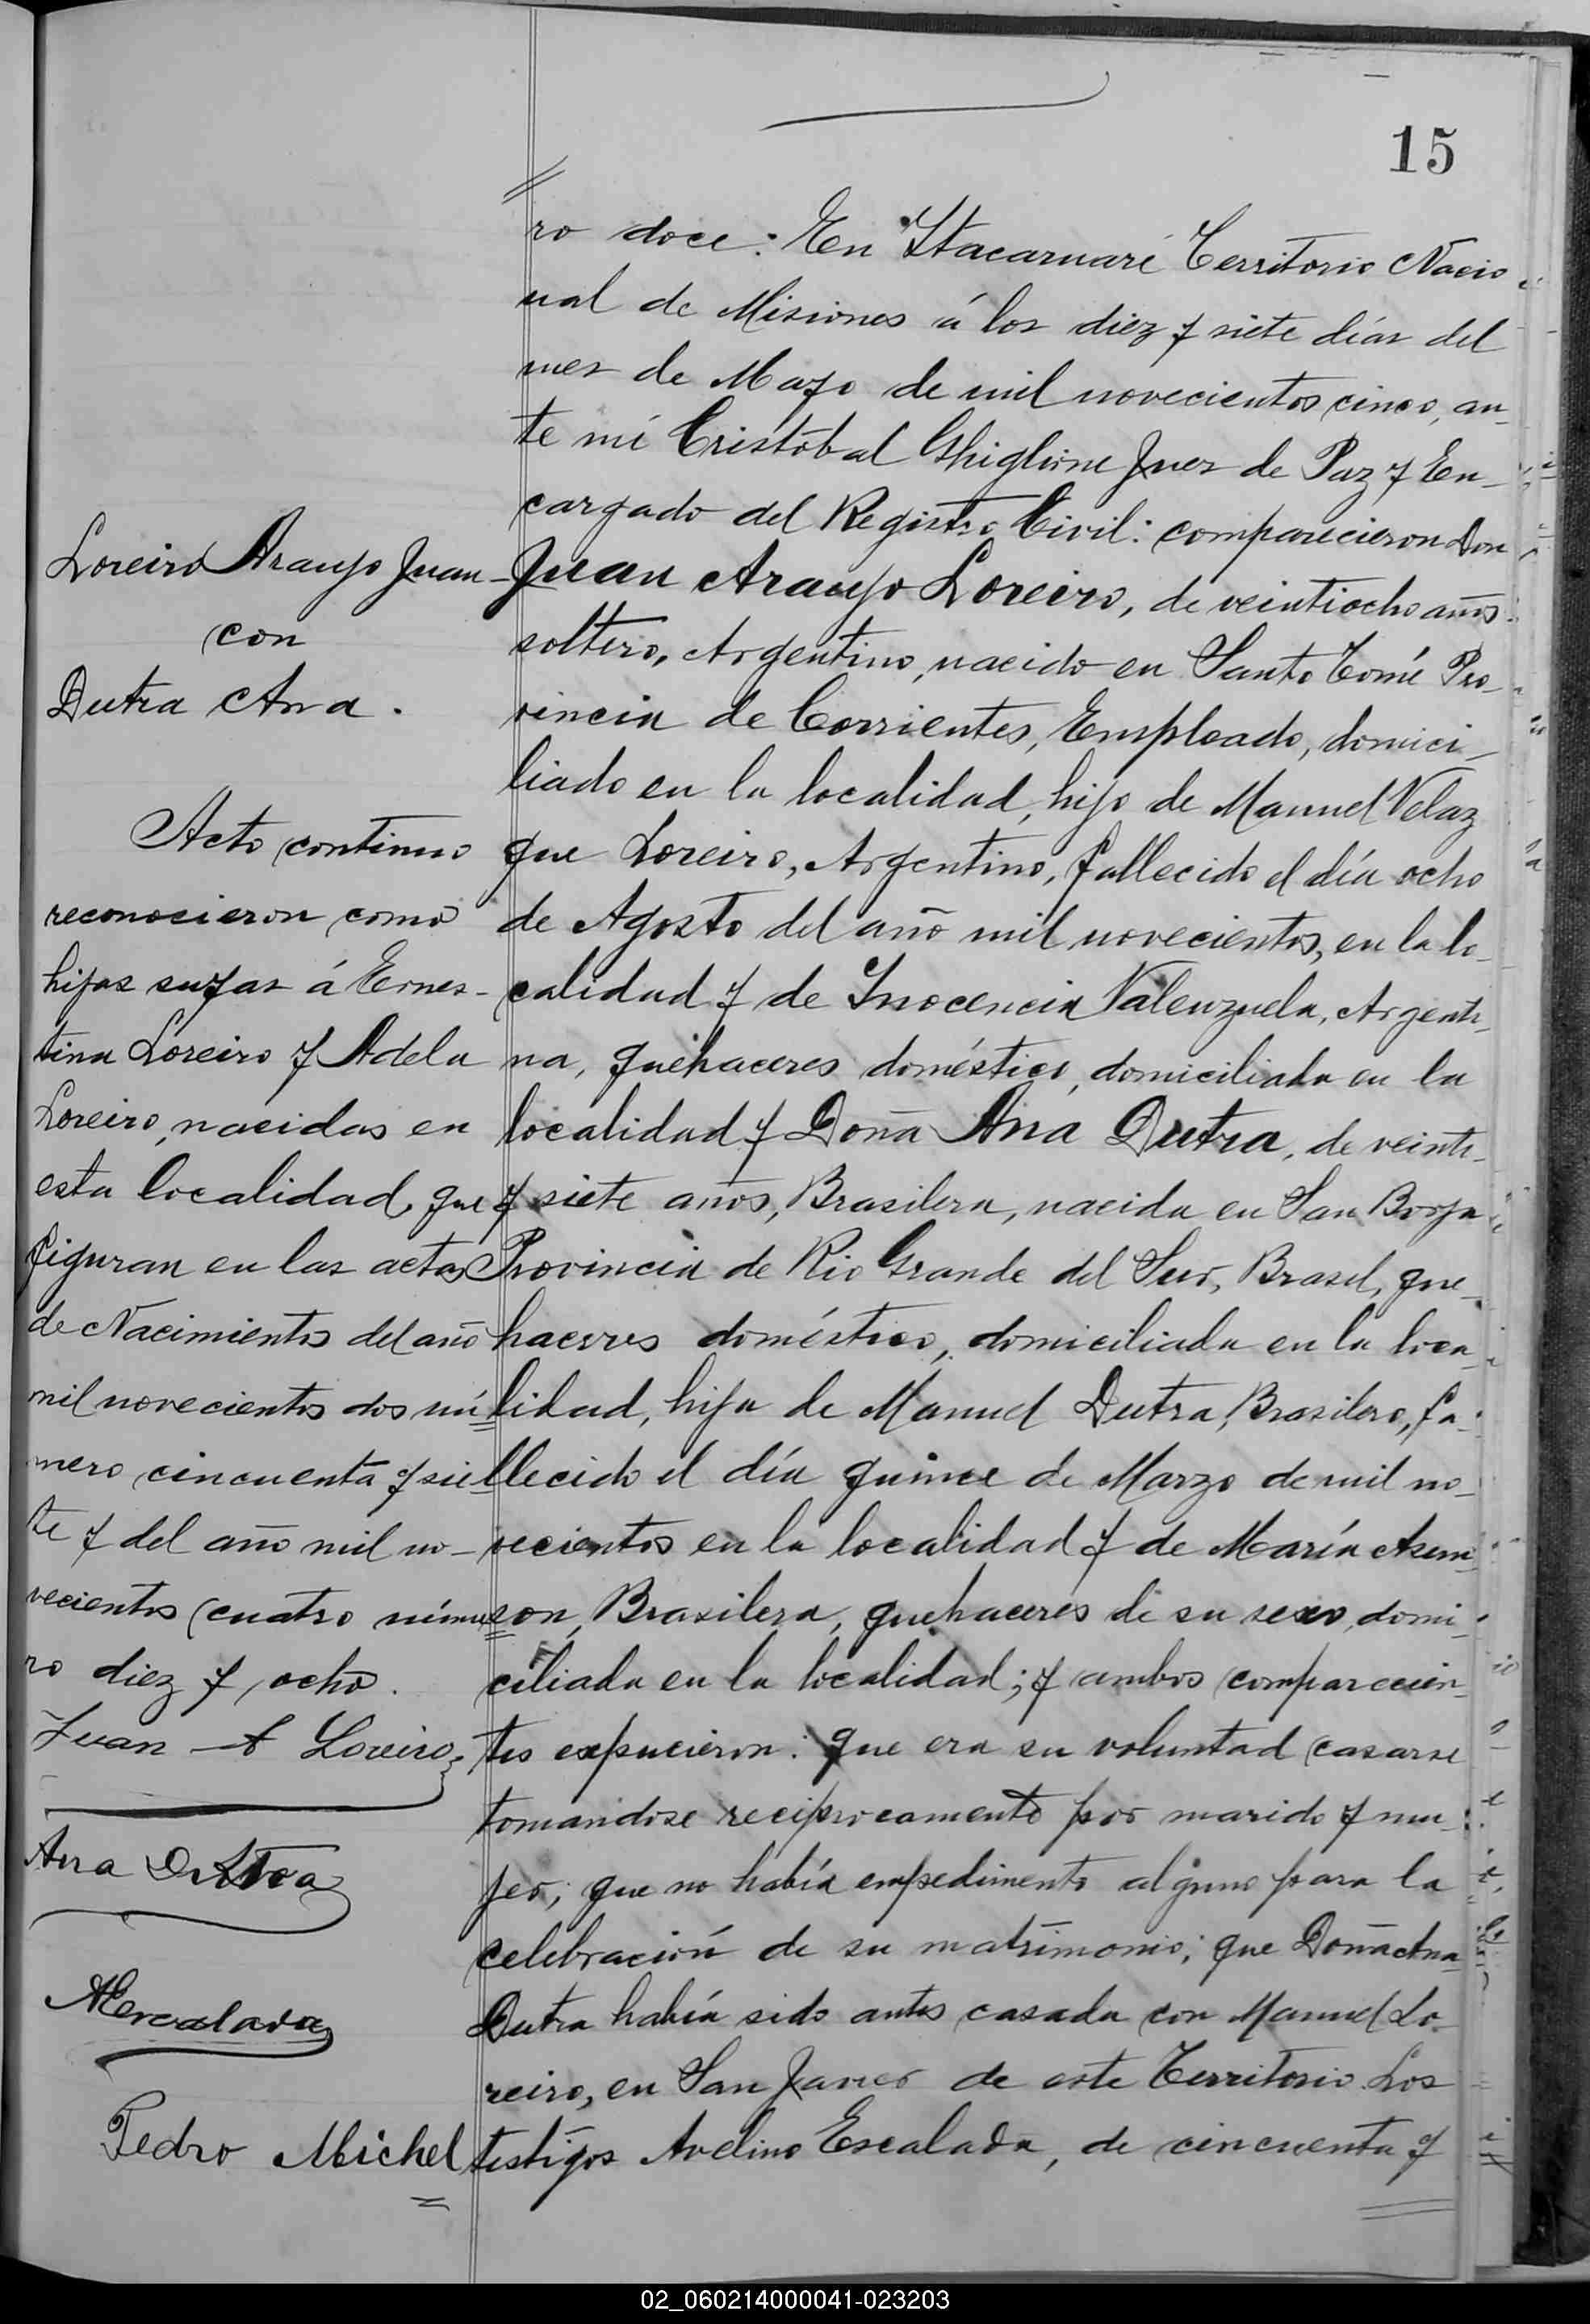 15
ro doce: En Itacaruaré Territorio Nacio
nal de Misiones á los diez y siete días del
mes de Mayo de mil novecientos cinco, an-
te mí Cristóbal Ghiglione Juez de Paz y En-
cargado del Registro Civil: comparecieron Don
Juan Araujo Loreiro, de veintiocho años
soltero, Argentino, nacido en Santo Tomé Pro-
vincia de Corrientes, Empleado, domici-
liado en la localidad, hijo de Manuel Velaz
que Loreiro, Argentino, fallecido el día ocho
de Agosto del año mil novecientos, en la lo-
calidad y de Inocencia Valenzuela, Argenti-
na, quehaceres doméstico, domiciliada en la
localidad y Doña Ana Dutra, de veinti-
y siete años, Brasilera, nacida en San Borja
Provincia de Rio Grande del Sur, Brasil, que-
haceres doméstico, domiciliada en la loca-
lidad, hija de Manuel Dutra, Brasilero, fa-
llecido el día quince de Marzo de mil no-
vecientos en la localidad y de María Asum-
son, Brasilera, quehaceres de su sexo, domi-
ciliada en la localidad; y ambos comparecien-
tes expucieron: que era su voluntad casarse
tomandose reciprocamente por marido y mu-
jer; que no había empedimento alguno para la
celebración de su matrimonio; que Doña Ana
Dutra había sido antes casada con Manuel Lo-
reiro, en San Javier de este Territorio. Los
testigos Avelino Escalada, de cincuenta y
Loreiro Araujo Juan
con
Dutra Ana.
Acto continuo
reconocieron como
hijas suyas á Ernes-
tina Loreiro y Adela
Loreiro, nacidas en
esta localidad, que
figuran en las actas
de Nacimientos del año
mil novecientos dos nú-
mero cincuenta y sie-
te y del año mil no-
vecientos cuatro núme
ro diez y ocho.
Juan A Loreiro
Ana Dutra
AEscalada
Pedro Michel
02_060214000041-023203